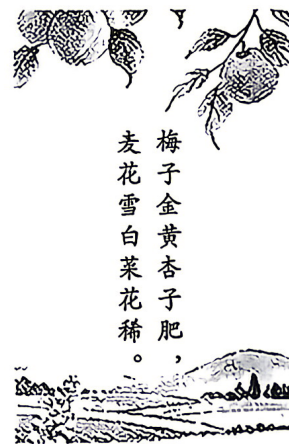 梅子金黄杏子肥，
麦花雪白菜花稀。